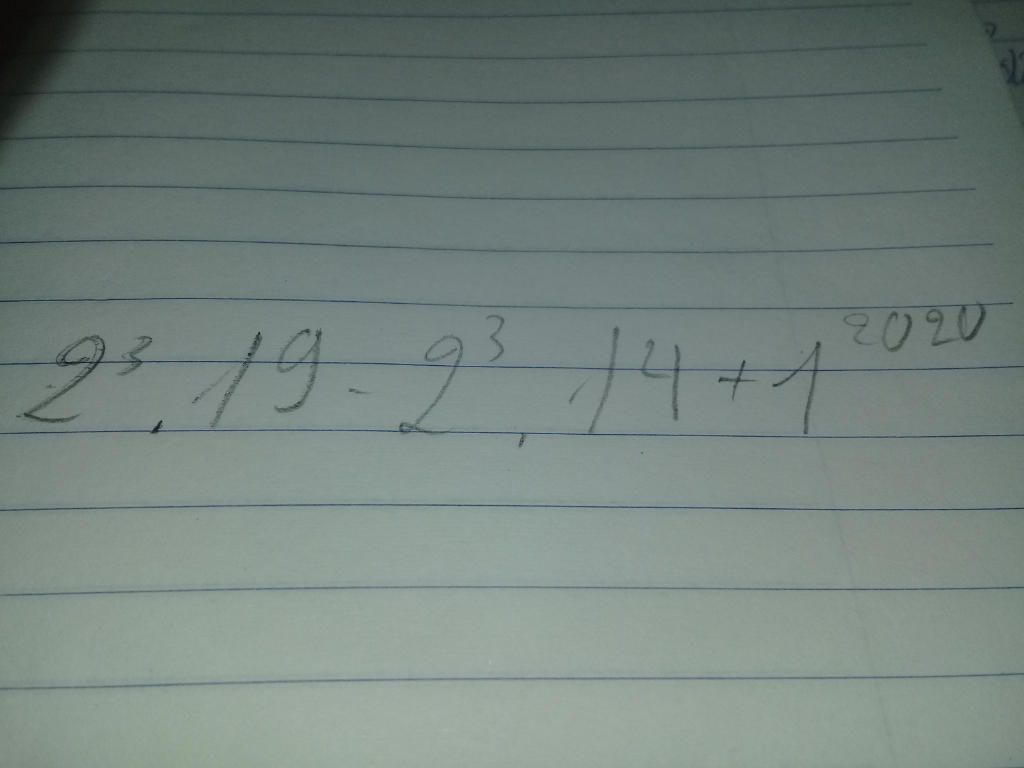 2³.19 - 2³.14 + 1²⁰²⁰